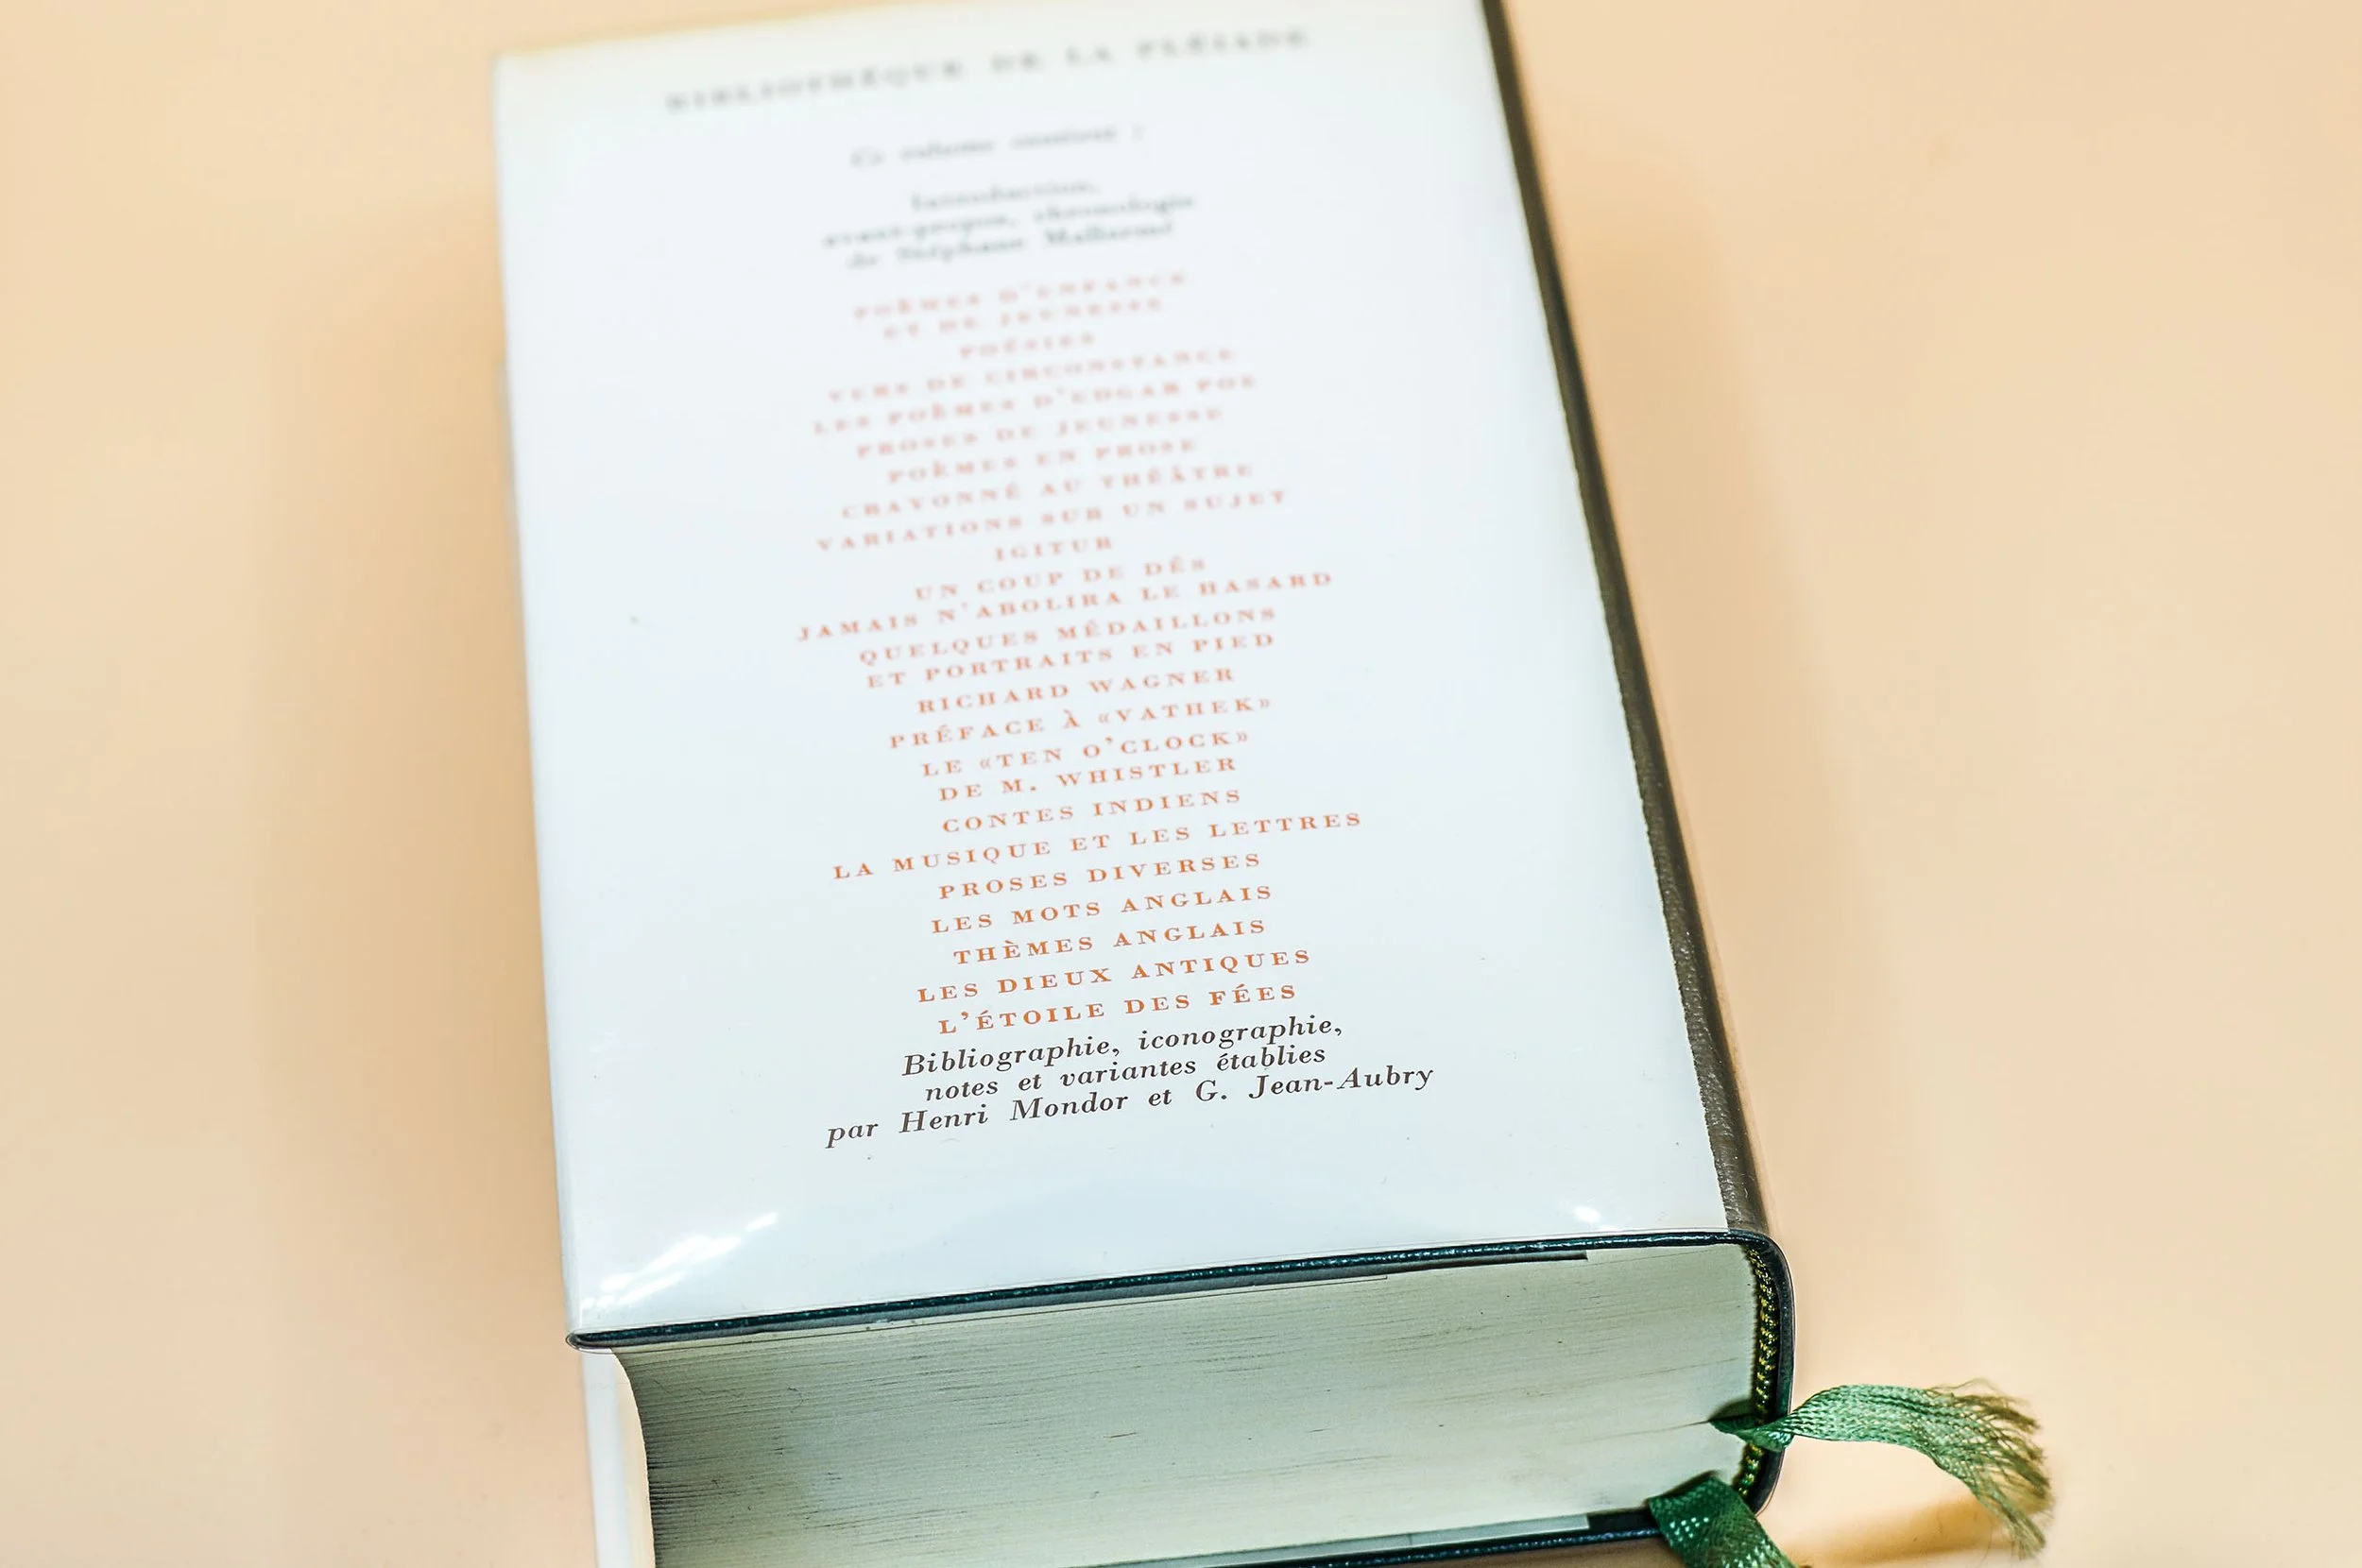 BIBLIOTHÈQUE DE LA PLÉIADE
Ce volume contient :
Introduction,
avant-propos, chronologie
de Stéphane Mallarmé
POÈMES D'ENFANCE
ET DE JEUNESSE
POÉSIES
VERS DE CIRCONSTANCE
LES POÈMES D'EDGAR POE
PROSES DE JEUNESSE
POÈMES EN PROSE
CRAYONNÉ AU THÉÂTRE
VARIATIONS SUR UN SUJET
IGITUR
UN COUP DE DÉS
JAMAIS N'ABOLIRA LE HASARD
QUELQUES MÉDAILLONS
ET PORTRAITS EN PIED
RICHARD WAGNER
PRÉFACE À «VATHEK»
LE «TEN O'CLOCK»
DE M. WHISTLER
CONTES INDIENS
LA MUSIQUE ET LES LETTRES
PROSES DIVERSES
LES MOTS ANGLAIS
THÈMES ANGLAIS
LES DIEUX ANTIQUES
L'ÉTOILE DES FÉES
Bibliographie, iconographie,
notes et variantes établies
par Henri Mondor et G. Jean-Aubry